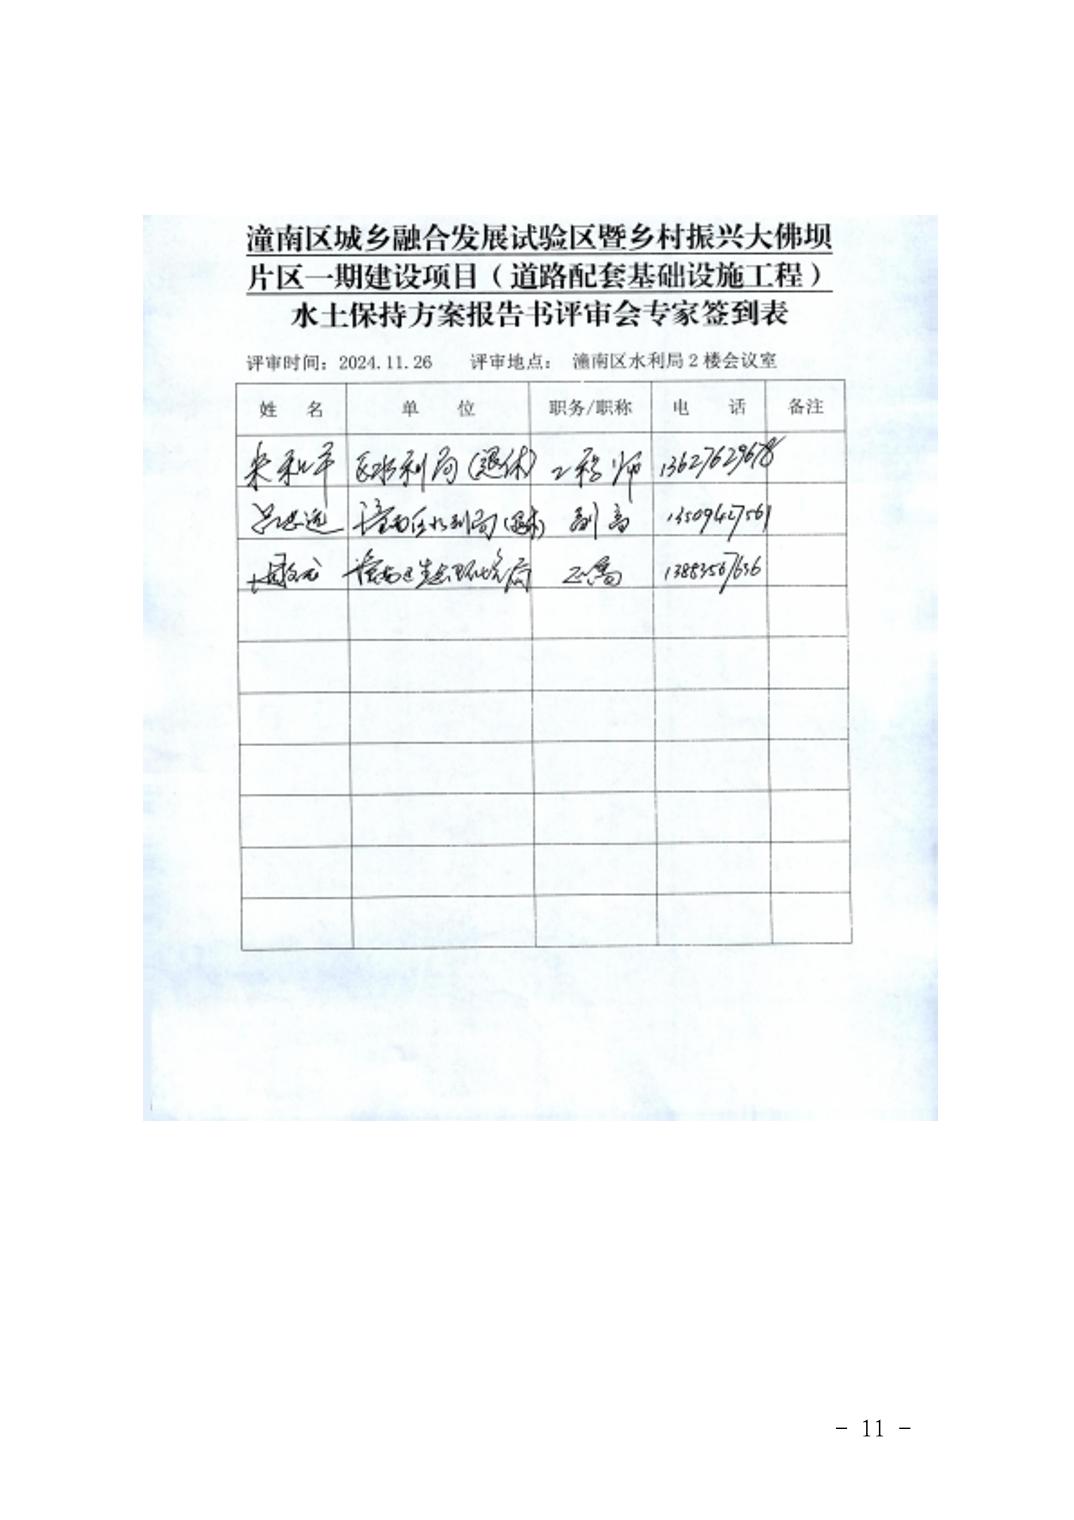 潼南区城乡融合发展试验区暨乡村振兴大佛坝
片区一期建设项目（道路配套基础设施工程）
水土保持方案报告书评审会专家签到表
评审时间：2024.11.26 评审地点： 潼南区水利局2楼会议室
姓 名 单 位 职务/职称 电 话 备注
区水利局(退休) 工程师 13627629678
潼南区水利局(退休) 副高 13509427561
潼南区生态环境局 正高 13883567636
- 11 -